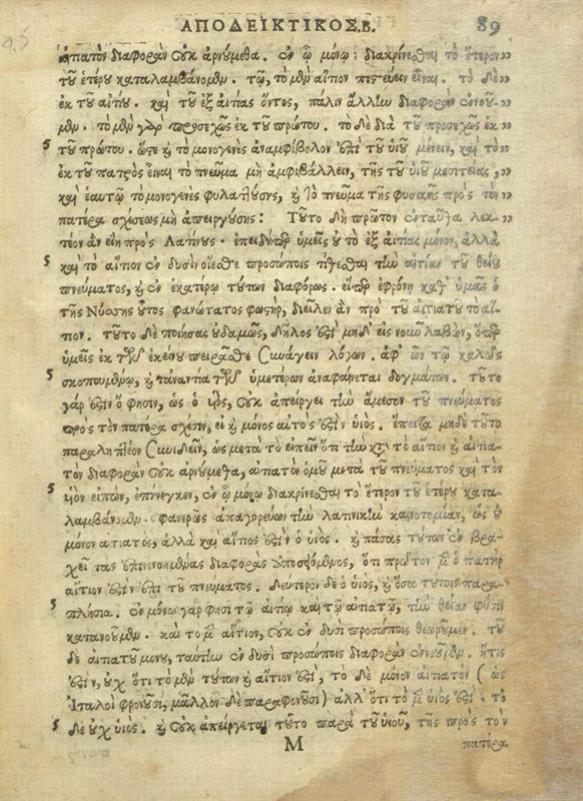 ΑΠΟΔΕΙΚΤΙΚΟΣ.Β. 89
αἰτιατὸν διαφορὰν οὐκ ἀρνούμεθα. ἐν ᾧ μόνῳ: διακρίνεσθαι τὸ ἕτερον
τοῦ ἑτέρου καταλαμβάνομεν. τῷ, τὸ μὲν αἴτιον πιστεύειν εἶναι. τὸ δὲ
ἐκ τοῦ αἰτίου. καὶ τοῦ ἐξ αἰτίας ὄντος, πάλιν ἄλλην διαφορὰν ἐννοοῦ-
μεν. τὸ μὲν γὰρ προσεχῶς ἐκ τοῦ πρώτου. τὸ δὲ διὰ τοῦ προσεχῶς ἐκ
5 τοῦ πρώτου. ὥστε καὶ τὸ μονογενὲς ἀναμφίβολον ἐπὶ τοῦ υἱοῦ μένειν, καὶ τὸ
ἐκ τοῦ πατρὸς εἶναι τὸ πνεῦμα μὴ ἀμφιβάλλειν, τῆς τοῦ υἱοῦ μεσιτείας,
καὶ ἑαυτῷ τὸ μονογενὲς φυλαττούσης, καὶ τὸ πνεῦμα τῆς φυσικῆς πρὸς τὸν
πατέρα σχέσεως μὴ ἀπειργούσης: Τοῦτο δὴ πρῶτον ἐνταῦθα λεκ-
τέον ἂν εἴη πρὸς Λατίνους. ἐπειδήπερ ὑμεῖς οὐ τὸ ἐξ αἰτίας μόνον, ἀλλὰ
5 καὶ τὸ αἴτιον ἐν δυσὶν οἴεσθε προσώποις τίθεσθαι τὴν αἰτίαν τοῦ θείου
πνεύματος, καὶ ἐν ἑκατέρῳ τούτων διαφόρως. εἴπερ ἐφρόνει καθ' ὑμᾶς ὁ
τῆς Νύσσης οὗτος φανώτατος φωστὴρ, διεῖλεν ἂν πρὸ τοῦ αἰτιατοῦ τὸ αἴ-
τιον. τοῦτο δὲ ποιήσας οὐδαμῶς, δῆλός ἐστι μηδ' εἰς νοῦν λαβὼν, ὅπερ
ὑμεῖς ἐκ τῶν ἐκείνου πειρᾶσθε συνάγειν λόγων. ἀφ' ὧν τῷ καλῶς
5 σκοπουμένῳ, καὶ τἀναντία τῶν ὑμετέρων ἀναφαίνεται δογμάτων. τοῦτο
γάρ ἐστιν ὅ φησιν, ὡς ὁ υἱὸς, οὐκ ἀπείργει τὴν ἄμεσον τοῦ πνεύματος
πρὸς τὸν πατέρα σχέσιν, εἰ καὶ μόνος αὐτός ἐστιν υἱός. ἔπειτα μηδὲ τοῦτο
παραλη πτέον συνιδεῖν, ὡς μετὰ τὸ εἰπεῖν ὅτι τὴν κατὰ τὸ αἴτιον καὶ αἰτια-
τὸν διαφορὰν οὐκ ἀρνούμεθα, αἰτιατὸν ὁμοῦ μετὰ τοῦ πνεύματος καὶ τὸν
5 υἱὸν εἰπὼν, ἐπήνεγκεν, ἐν ᾧ μόνῳ διακρίνεσθαι τὸ ἕτερον τοῦ ἑτέρου κατα-
λαμβάνομεν. φανερῶς ἀπαγορεύων τὴν λατινικὴν καινοτομίαν, ὡς οὐ
μόνον αἰτιατὸς, ἀλλὰ καὶ αἴτιός ἐστιν ὁ υἱός. καὶ πάσας τούτων ἐν βρα-
χεῖ τὰς ἐπινοουμένας διαφορὰς ὑποτεμόμενος, ὅτι πρῶτον μὲν ὁ πατὴρ
αἴτιόν ἐστιν ἐπὶ τοῦ πνεύματος. δεύτερον δὲ ὁ υἱὸς, καὶ ὅσα τούτοις παρα-
5 πλήσια. ἐν μόνῳ γάρ φησι τῷ αἰτίῳ καὶ τῷ αἰτιατῷ, τὴν θείαν φύσιν
κατανοοῦμεν. καὶ τὸ μὲν αἴτιον, οὐκ ἐν δυσὶ προσώποις θεωροῦμεν. τοῦ
δὲ αἰτιατοῦ μόνου, ταύτην ἐν δυσὶ προσώποις διαφορὰν ἐννοοῦμεν. ἥτις
ἐστὶν, οὐχ ὅτι τὸ μὲν τούτων καὶ αἴτιόν ἐστι, τὸ δὲ μόνον αἰτιατὸν (ὡς
Ἰταλοὶ φρονοῦσι, μᾶλλον δὲ παραφρονοῦσι) ἀλλ' ὅτι τὸ μὲν υἱός ἐστι. τὸ
5 δὲ οὐχ υἱός. καὶ οὐκ ἀπείργεται τοῦτο παρὰ τοῦ υἱοῦ, τῆς πρὸς τὸν
Μ πατέρα